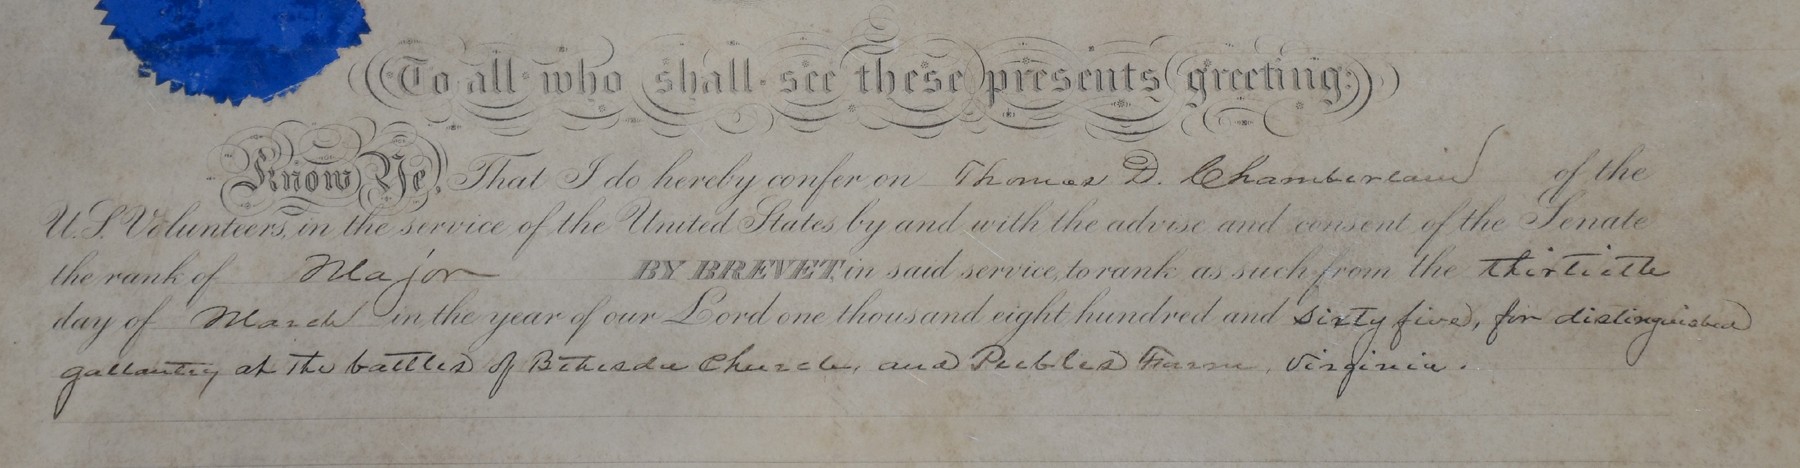 To all who shall see these presents greeting:
Know Ye, That I do hereby confer on Thomas D. Chamberlain of the
U.S. Volunteers, in the service of the United States by and with the advise and consent of the Senate
the rank of Major BY BREVET in said service, to rank as such from the thirtieth
day of March in the year of our Lord one thousand eight hundred and sixty five, for distinguished
gallantry at the battles of Bethesda Church, and Peebles Farm, Virginia.